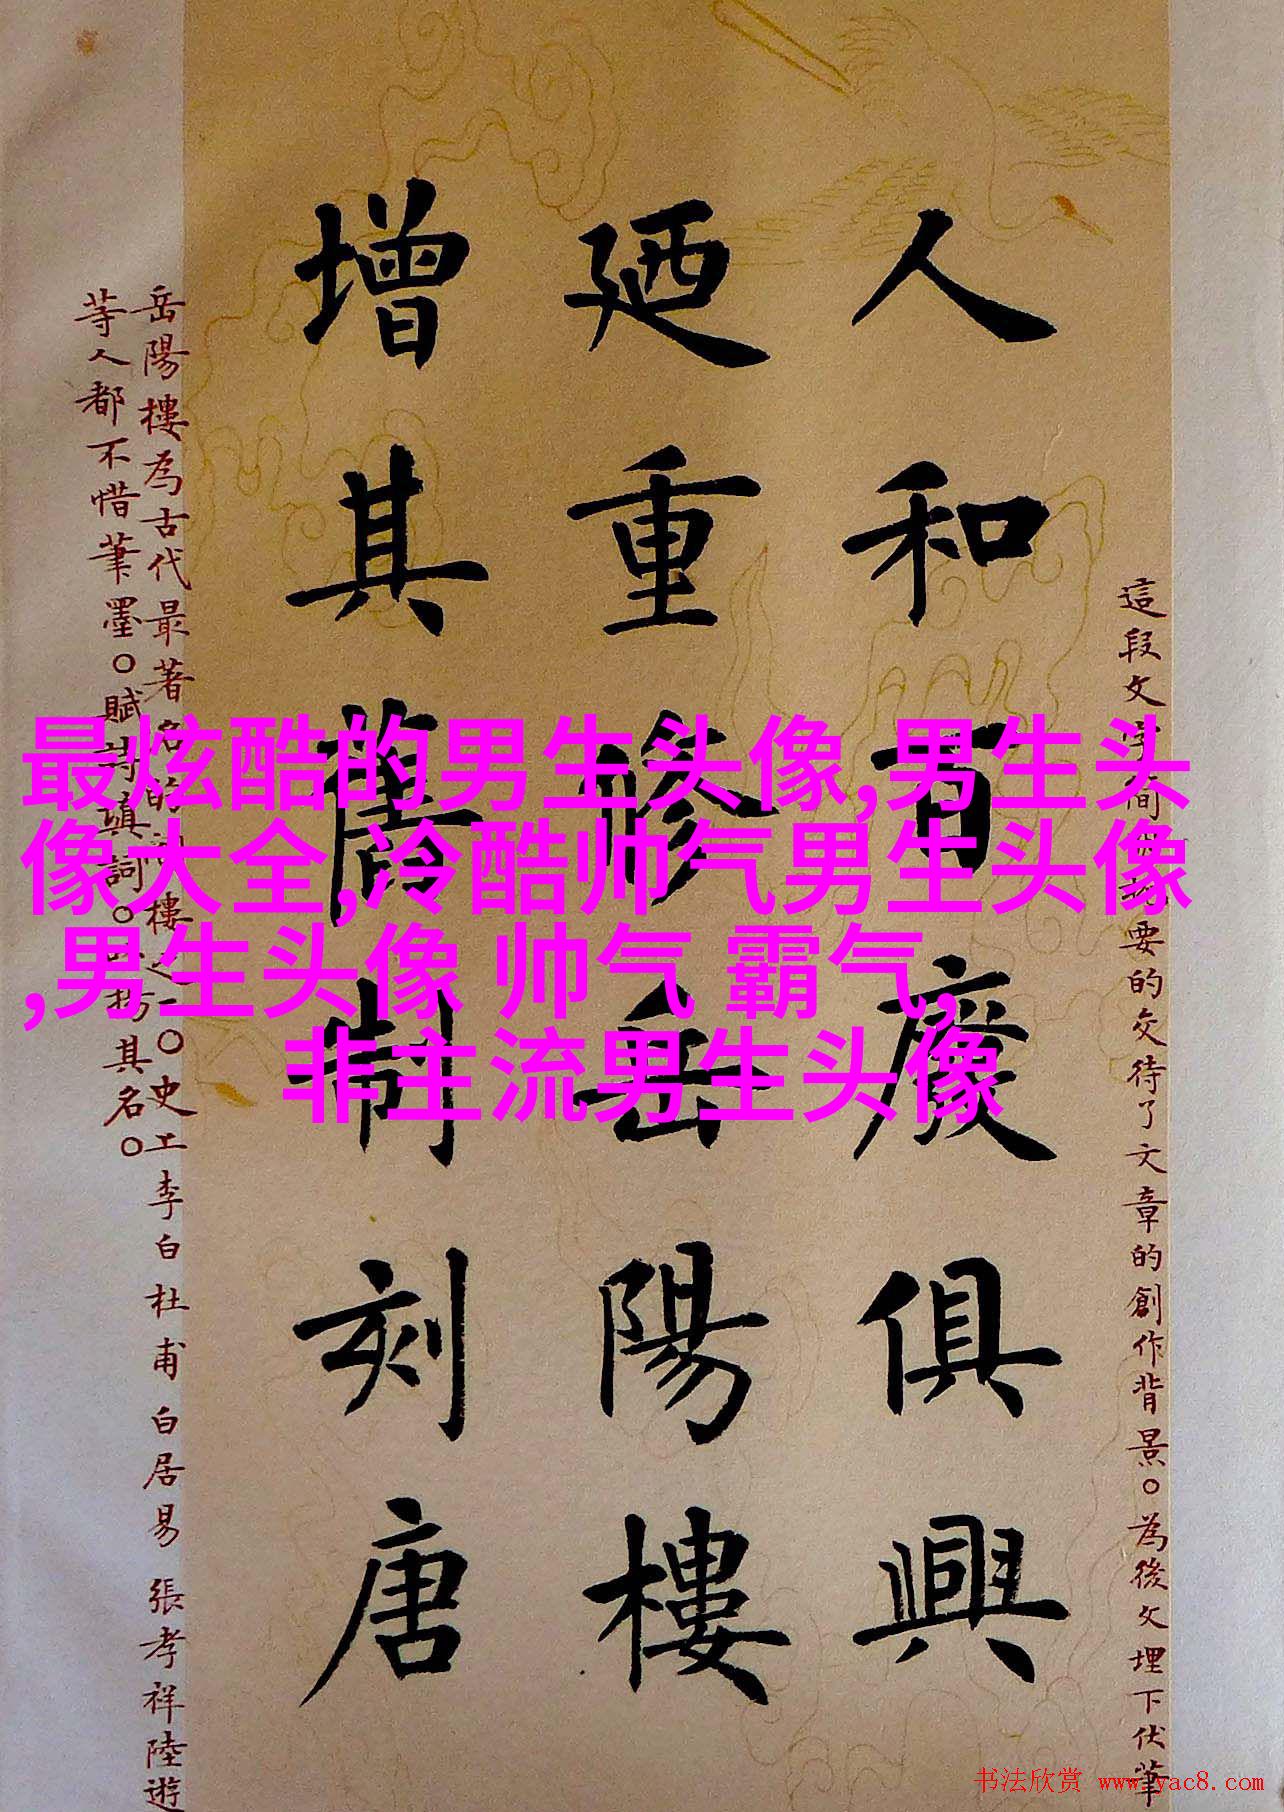 最炫酷的男生头像,男生头
像大全,冷酷帅气男生头像
,男生头像 帅气 霸气,
非主流男生头像
這段文字簡要的交待了文章的創作背景。為後文埋下伏筆
人和百廢俱興
廼重修岳陽樓
增其舊制刻唐
岳陽樓為古代最著名的樓之一。史上李白杜甫白居易張孝祥陸遊
等人都不惜筆墨。賦詩填詞。揚其名。
书法欣赏 www.yac8.com